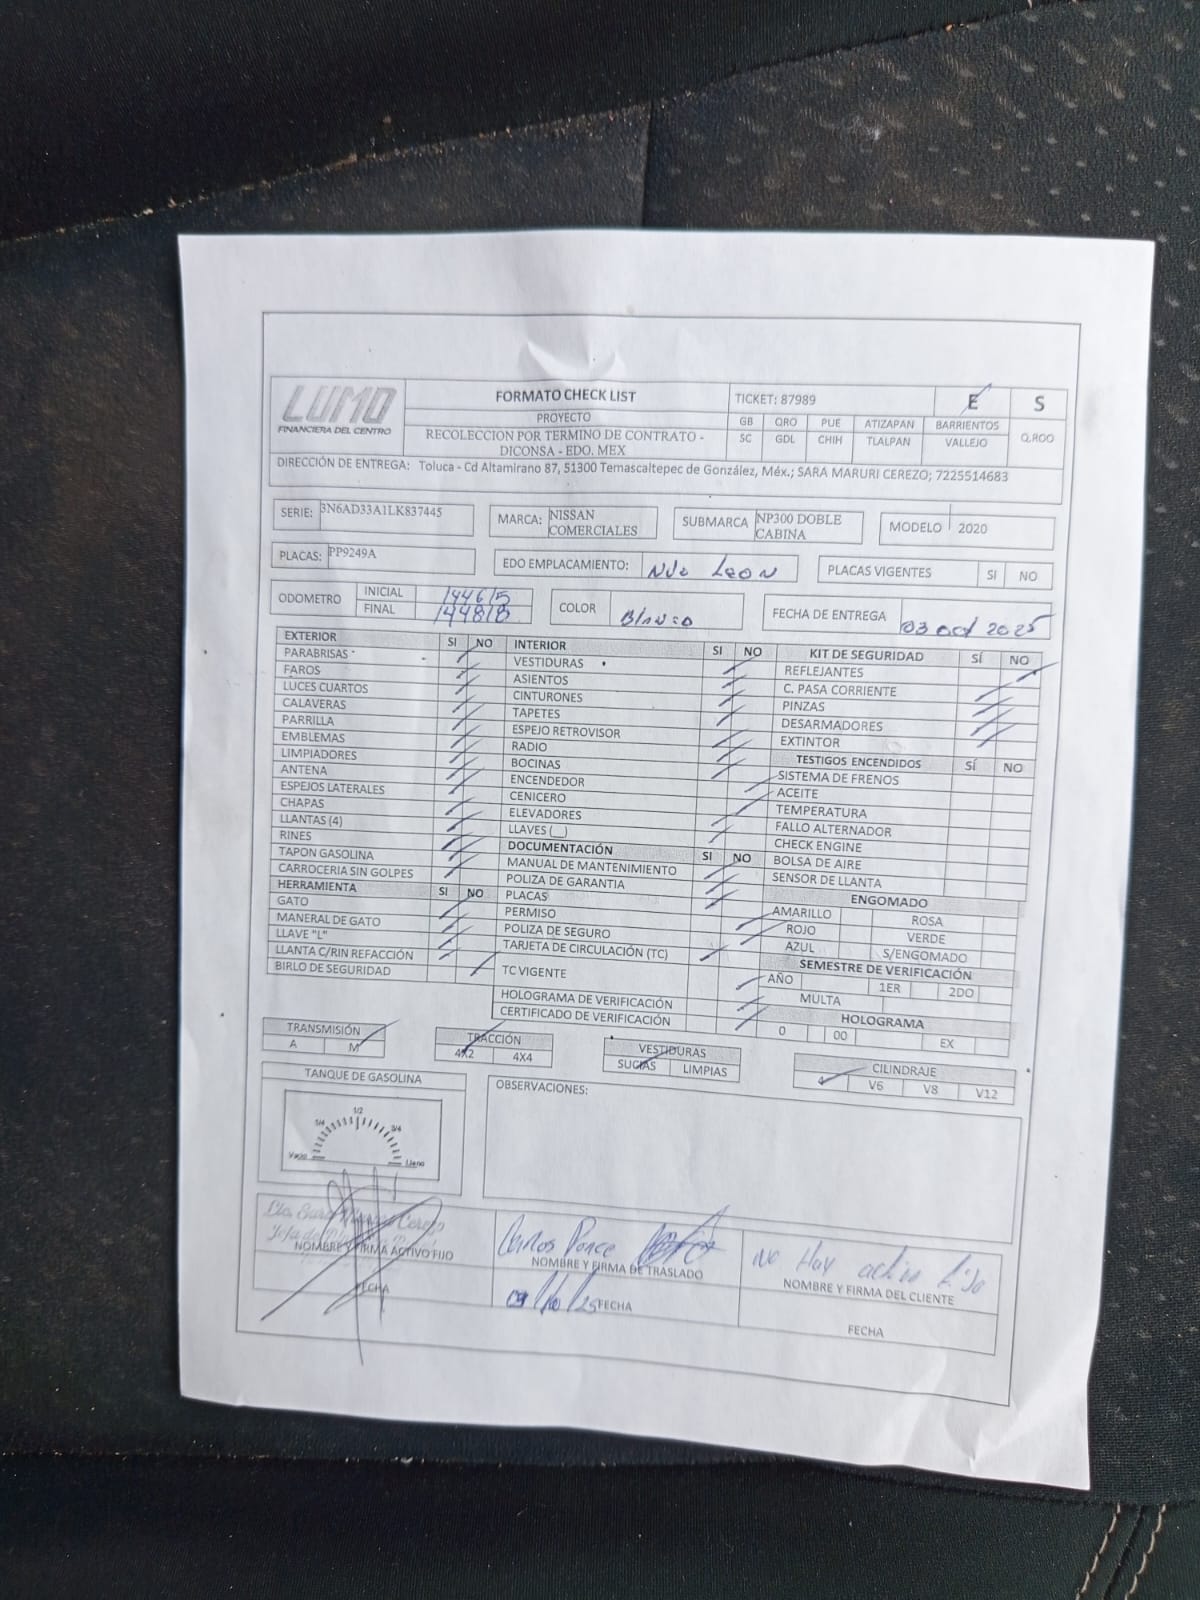 LUMO
FINANCIERA DEL CENTRO
FORMATO CHECK LIST
PROYECTO
RECOLECCION POR TERMINO DE CONTRATO -
DICONSA - EDO. MEX
TICKET: 87989
E
S
GB QRO PUE ATIZAPAN BARRIENTOS
SC GDL CHIH TLALPAN VALLEJO
Q.ROO
DIRECCIÓN DE ENTREGA: Toluca - Cd Altamirano 87, 51300 Temascaltepec de González, Méx.; SARA MARURI CEREZO; 7225514683
SERIE: 3N6AD33A1LK837445
MARCA: NISSAN COMERCIALES
SUBMARCA NP300 DOBLE CABINA
MODELO 2020
PLACAS: PP9249A
EDO EMPLACAMIENTO: NVO LEON
PLACAS VIGENTES SI NO
ODOMETRO
INICIAL 144615
FINAL 144818
COLOR Blanco
FECHA DE ENTREGA 03 oct 2025
EXTERIOR SI NO
PARABRISAS
FAROS
LUCES CUARTOS
CALAVERAS
PARRILLA
EMBLEMAS
LIMPIADORES
ANTENA
ESPEJOS LATERALES
CHAPAS
LLANTAS (4)
RINES
TAPON GASOLINA
CARROCERIA SIN GOLPES
HERRAMIENTA SI NO
GATO
MANERAL DE GATO
LLAVE "L"
LLANTA C/RIN REFACCIÓN
BIRLO DE SEGURIDAD
INTERIOR SI NO
VESTIDURAS
ASIENTOS
CINTURONES
TAPETES
ESPEJO RETROVISOR
RADIO
BOCINAS
ENCENDEDOR
CENICERO
ELEVADORES
LLAVES (__)
DOCUMENTACIÓN SI NO
MANUAL DE MANTENIMIENTO
POLIZA DE GARANTIA
PLACAS
PERMISO
POLIZA DE SEGURO
TARJETA DE CIRCULACIÓN (TC)
TC VIGENTE
HOLOGRAMA DE VERIFICACIÓN
CERTIFICADO DE VERIFICACIÓN
KIT DE SEGURIDAD SÍ NO
REFLEJANTES
C. PASA CORRIENTE
PINZAS
DESARMADORES
EXTINTOR
TESTIGOS ENCENDIDOS SÍ NO
SISTEMA DE FRENOS
ACEITE
TEMPERATURA
FALLO ALTERNADOR
CHECK ENGINE
BOLSA DE AIRE
SENSOR DE LLANTA
ENGOMADO
AMARILLO ROSA
ROJO VERDE
AZUL S/ENGOMADO
SEMESTRE DE VERIFICACIÓN
AÑO 1ER 2DO
MULTA
HOLOGRAMA
0 00 EX
TRANSMISIÓN
A M
TRACCIÓN
4X2 4X4
VESTIDURAS
SUCIAS LIMPIAS
CILINDRAJE
V6 V8 V12
TANQUE DE GASOLINA
Vacio 1/4 1/2 3/4 Lleno
OBSERVACIONES:
NOMBRE Y FIRMA ACTIVO FIJO
FECHA
Carlos Ponce
NOMBRE Y FIRMA DE TRASLADO
FECHA
No Hay activo Fijo
NOMBRE Y FIRMA DEL CLIENTE
FECHA